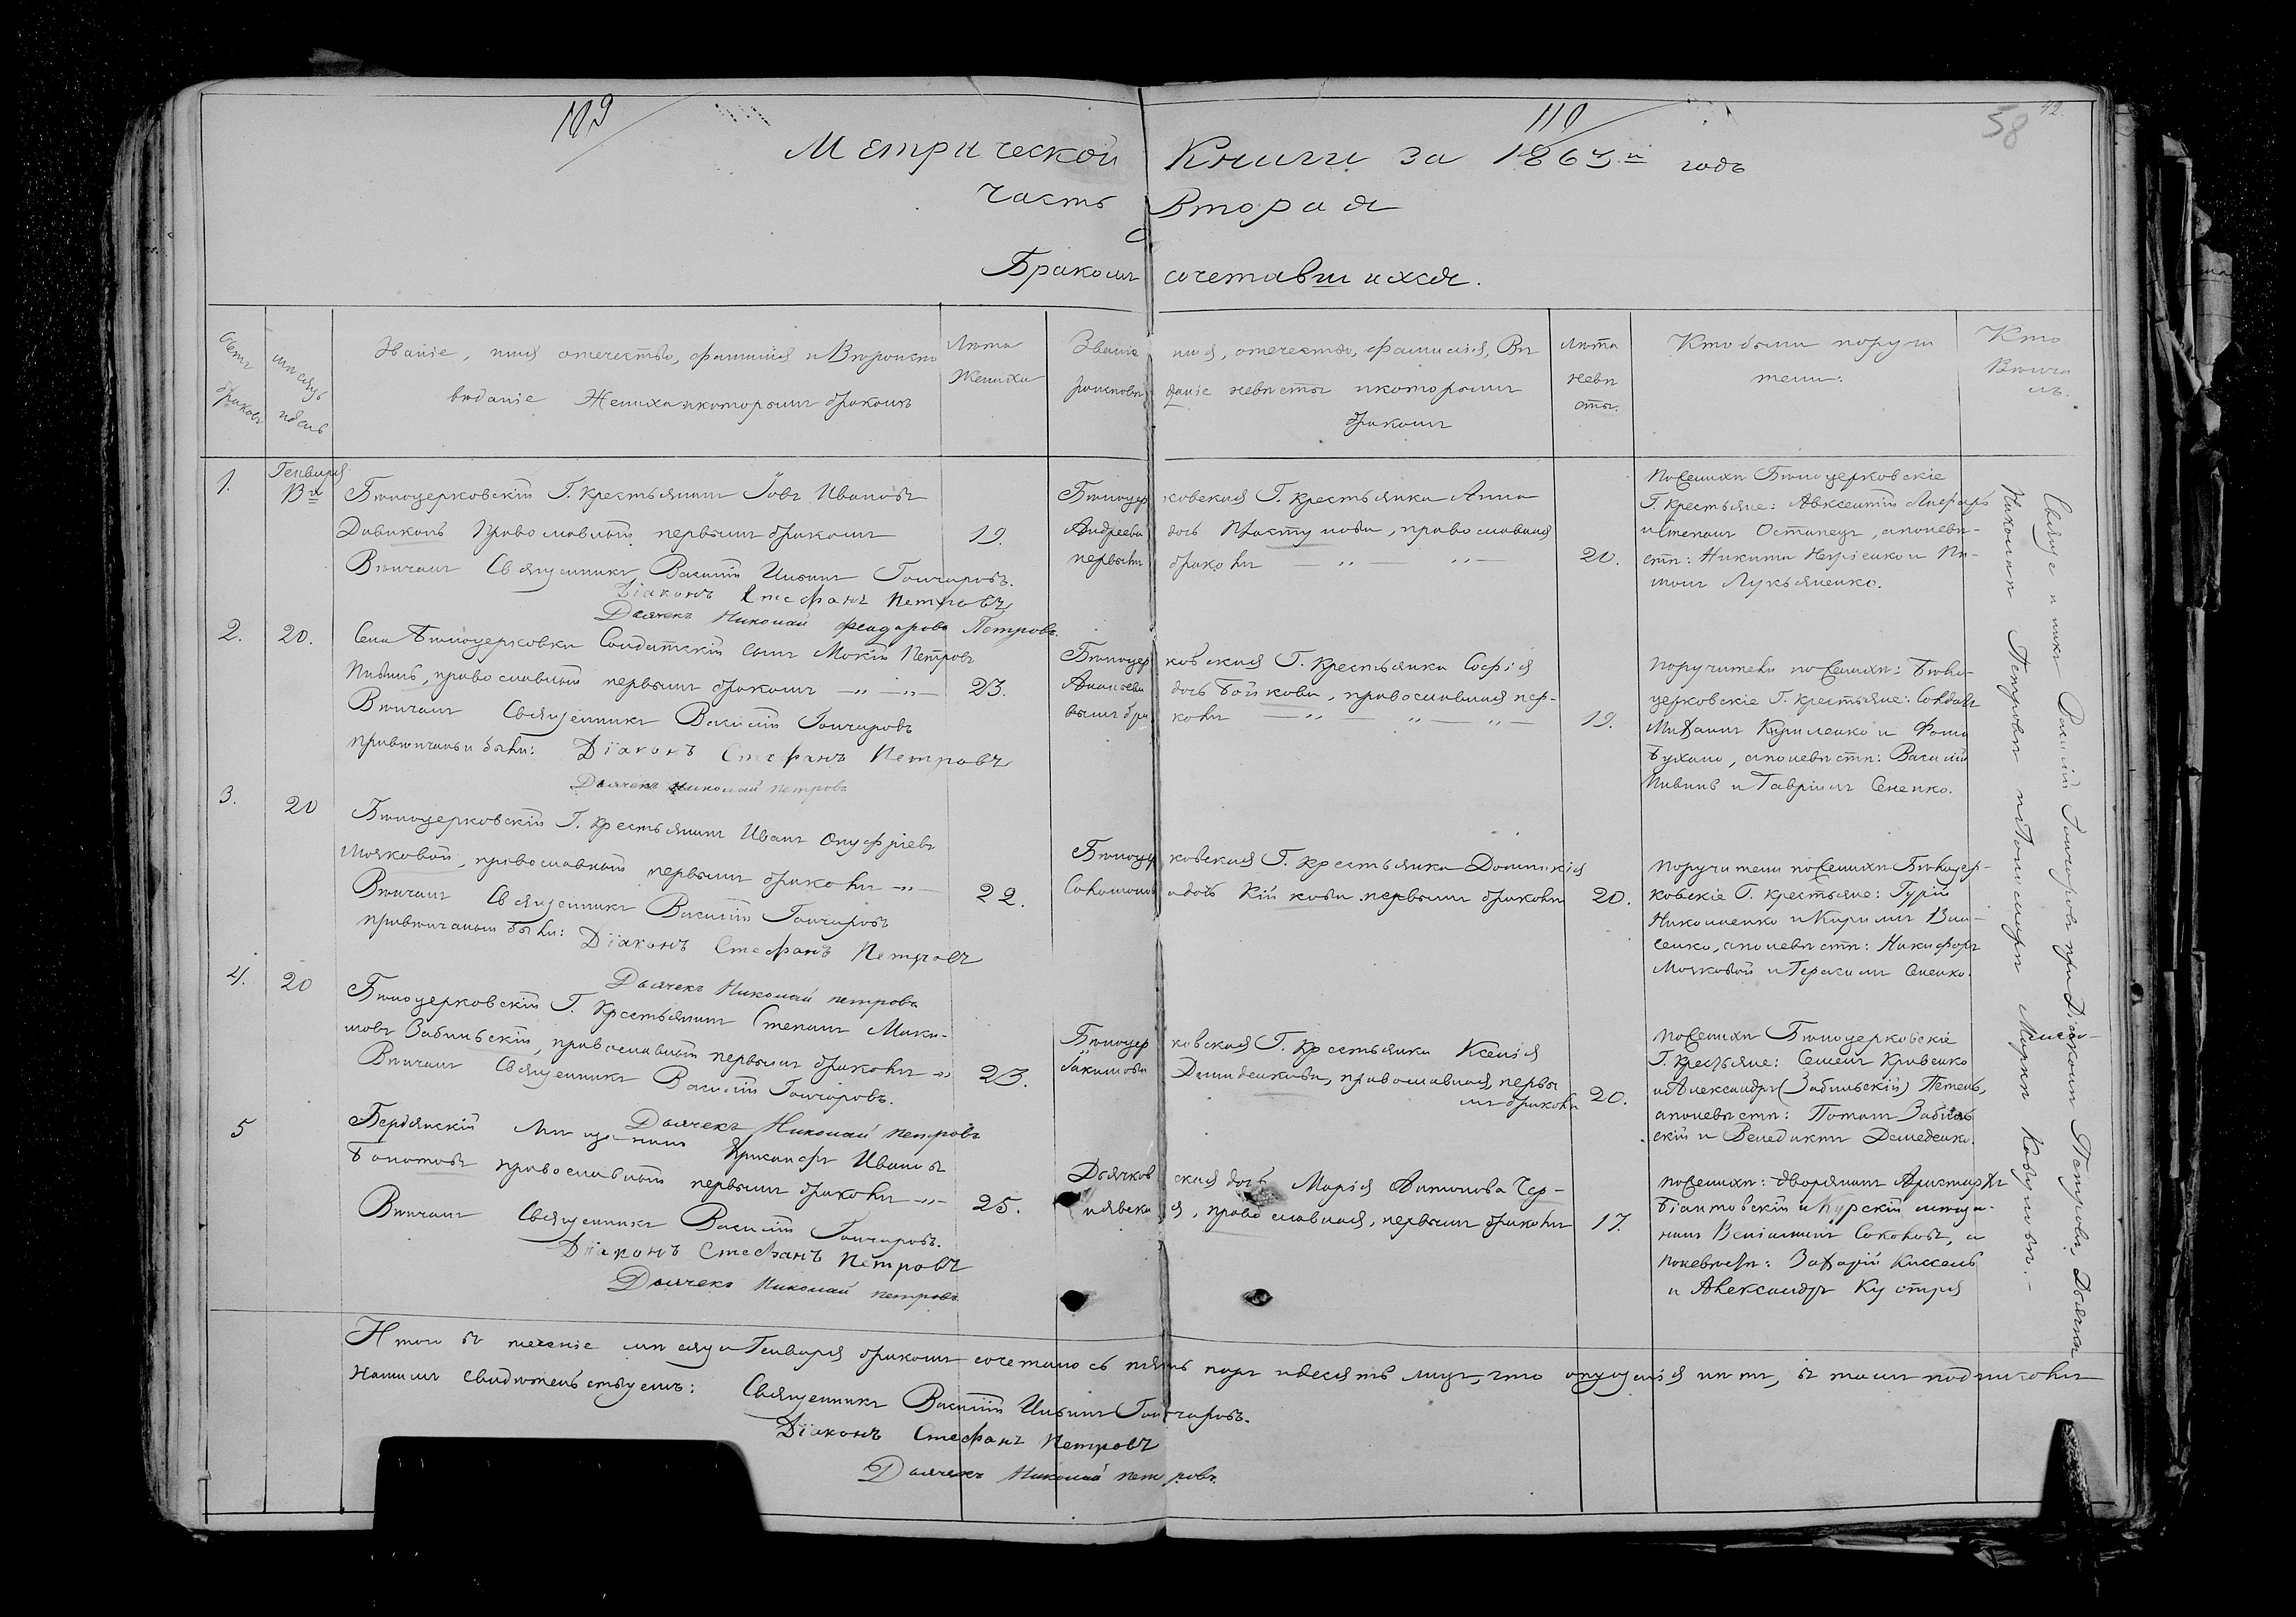 109
110
58
42.
Метрической Книги за 186 годъ
Часть Вторая
О
Бракомъ сочетавшихся.
Счетъ браковъ
мѣсяцъ и день
Званіе, имя отечество, фамилія и Вѣроиспо
вѣданіе Жениха и которымъ бракомъ
Лѣта
Жениха
Званіе имя, отечество, фамилія, Вѣ
роисповѣ даніе невѣсты и которымъ
бракомъ
Лѣта
невѣ
сты.
Кто были поручи
тели:
Кто
Вѣнча
лъ.
1.
Генваря
13й
Бѣлоцерковскій Г. крестьянинъ Іовъ Ивановъ
православный первымъ бракомъ
19.
Вѣнчалъ Священникъ Василій Ильинъ Гончаровъ.
Діаконъ Стефанъ Петровъ
Дьячекъ Николай Феодоровъ Петровъ
Бѣлоцер ковская Г. крестьянка Анна
Андреева дочь православная
первымъ бракомъ — " — " —
20.
по Женихѣ Бѣлоцерковскіе
Г. крестьяне: Авксентій
и Степанъ Остапецъ, а по невѣ-
стѣ: Никита и Пи-
менъ Лукьяненко.
2.
20.
Села Бѣлоцерковки Солдатскій сынъ Мокій Петровъ
Пивень, православный первымъ бракомъ — " — " —
23.
Вѣнчалъ Священникъ Василій Гончаровъ
при вѣнчаньи были: Діаконъ Стефанъ Петровъ
Дьячекъ Николай Петровъ
Бѣлоцер ковская Г. крестьянка Софія
Ананьева дочь Бойкова, православная пер-
вымъ бра комъ — " — " — " —
19.
Поручители по Женихѣ: Бѣло-
церковскіе Г. крестьяне: Солдатъ
Михаилъ Куриленко и Фома
а по невѣстѣ: Василій
Пивень и Гавріилъ Сененко.
3.
20
Бѣлоцерковскій Г. крестьянинъ Иванъ Онуфріевъ
православный первымъ бракомъ — " —
22.
Вѣнчалъ Священникъ Василій Гончаровъ
при вѣнчаньи были: Діаконъ Стефанъ Петровъ
Дьячекъ Николай Петровъ
Бѣлоцер ковская Г. крестьянка Домникія
Соломонов а дочь Кійкова первымъ бракомъ
20.
Поручители по Женихѣ Бѣлоцер-
ковскіе Г. крестьяне: Гурій
Николаенко и Кирилъ Вла-
сенко, а по невѣстѣ: Никифоръ
и Герасимъ Сененко.
4.
20
Бѣлоцерковскій Г. крестьянинъ Степанъ Маки-
мовъ Забильскій, православный первымъ бракомъ "
23.
Вѣнчалъ Священникъ Василій Гончаровъ.
Дьячекъ Николай Петровъ
Бѣлоцер ковская Г. крестьянка Ксенія
Іакимова Демиденкова, православная, первы
мъ бракомъ
20.
по Женихѣ Бѣлоцерковскіе
Г. крестьяне: Семенъ Кривенко
и Александръ (Забильскій)
а по невѣстѣ: Потапъ Забиль
скій и Венедиктъ Демеденко.
5
Бердянскій Мѣщанинъ Ивановъ
Болотовъ православный первымъ бракомъ — " —
25.
Вѣнчалъ Священникъ Василій Гончаровъ.
Діаконъ Стефанъ Петровъ
Дьячекъ Николай Петровъ
Дьячков ская дочь Марія Антонова Чер-
нявска я, православная, первымъ бракомъ
17.
по Женихѣ: дворянинъ Аристархъ
и Курскій мѣща-
нинъ Веніаминъ Соколовъ, а
по невѣстѣ: Захарій Кисель
и Александръ
Священникъ Василій Гончаровъ при Діаконѣ Петровѣ, Дьячкѣ
Николаѣ Петровѣ и Пономарѣ Маркѣ
Итого въ теченіе мѣсяца Генваря бракомъ сочетано сь пять паръ и десять лицъ, что опущенія нѣтъ, въ томъ подписомъ
нашимъ свидѣтельствуемъ: Священникъ Василій Ильинъ Гончаровъ.
Діаконъ Стефанъ Петровъ
Дьячекъ Николай Петровъ